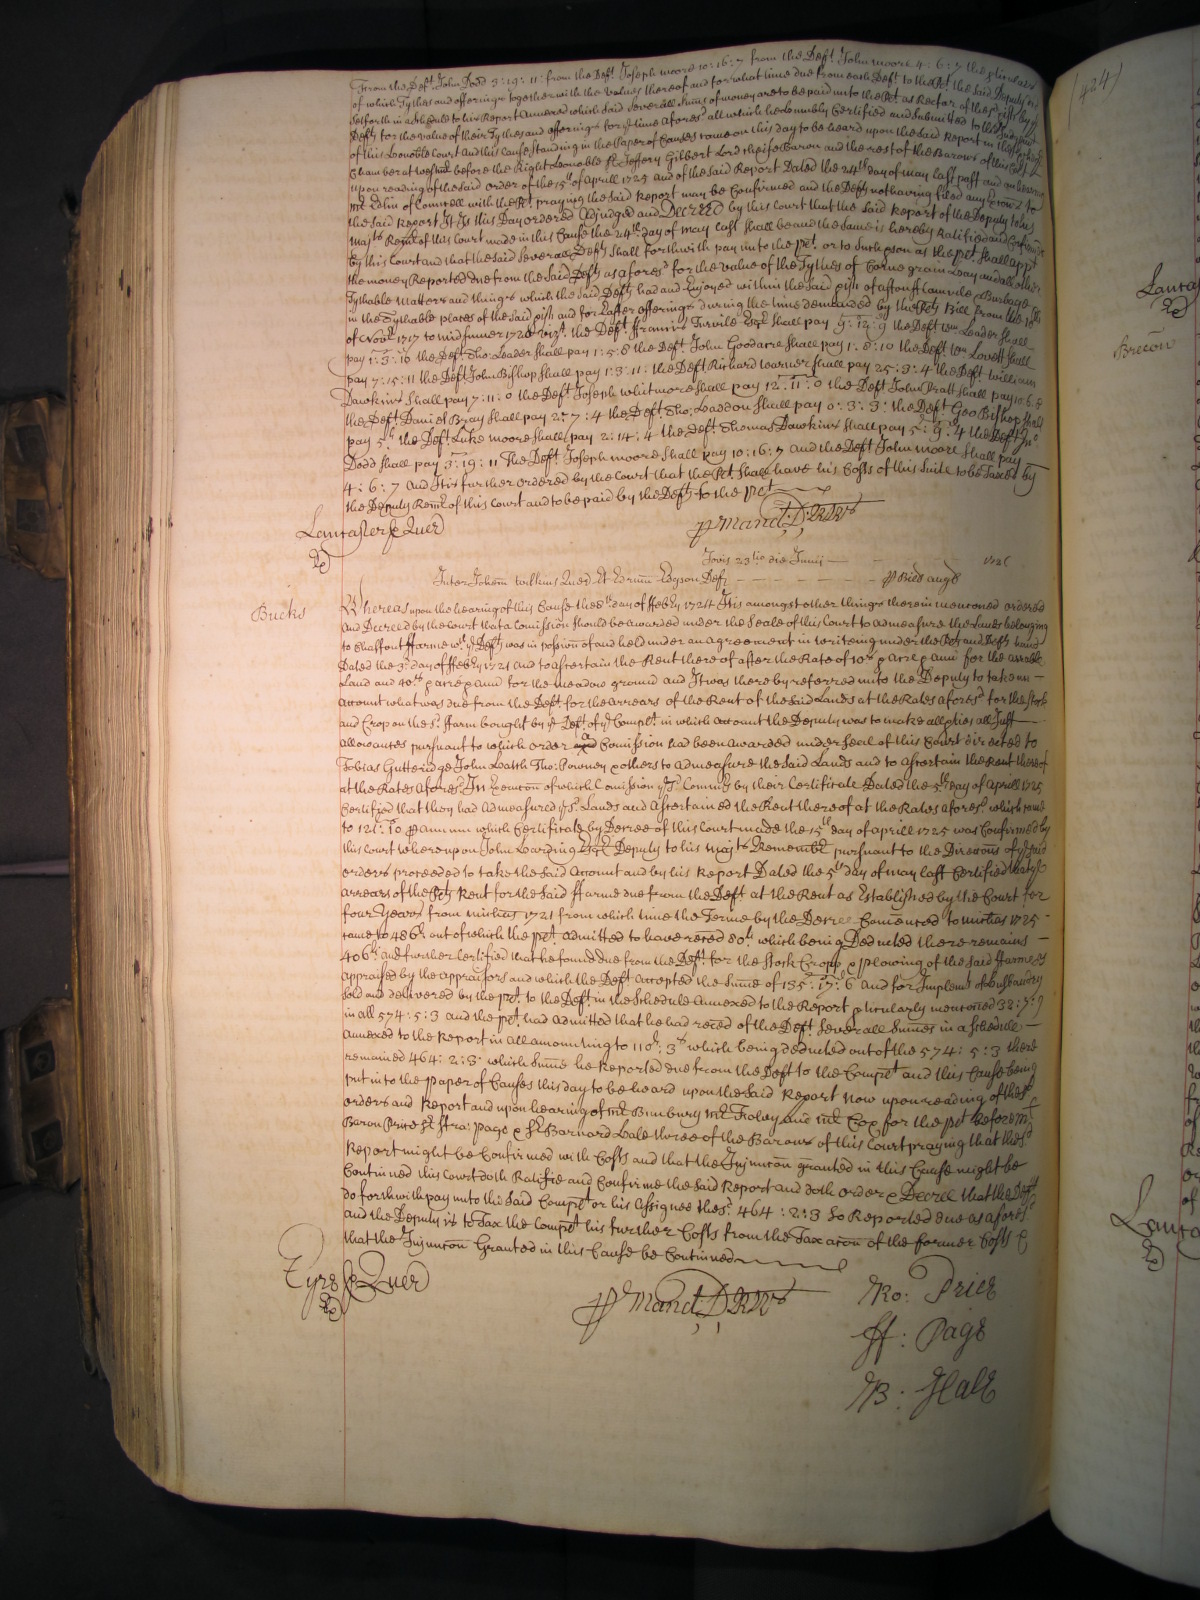 From the Deft. John Dodd 3:19:11: from the Deft. Joseph moore 10:16:7 from the Deft. John moore 4:6:7 the pticulars
of which Tythes and offerings together with the values thereof and for what time due from each Deft to the Plt. the said Deputy had
sett forth in a Schedule to his Report Annexed which said severall Sums of money are to be paid unto the Plt as Rector of the said pish by ye
Defts for the value of their Tythes and offerings for ye time aforesd all which he humbly Certified and submitted to the Judgmt
of this honoble Court And this Cause standing in the Paper of Causes came on this day to be heard upon the said Report in the Excheqr
Chamber at Westmr before the Right honoble Sr Jeffery Gilbert Lord Cheife Baron and the rest of the Barons of this Court
upon reading of the said order of the 15th of Aprill 1725 and of the said Report Dated the 24th day of may last past and on hearing
mr Edlin of Councell with the Plt. praying the said Report may be Confirmed and the Defts not having filed any Excons to
the said Report It Is this Day ordered Adjudged and Decreed by this Court that the said Report of the Deputy to his
Majts Remr of this Court made in this Cause the 24th day of may last shall be and the same is hereby Ratified and Confirmed
by this Court and that the said severall Defts shall forthwith pay unto the Plt. or to such pson as the Plt. shall appt
the money Reported due from the said Defts as aforesd for the value of the Tythes of Corne grain hay and all other
Tythable matters and things which the said Defts had and Enjoyed within the said pish of aston fflamvile & Burbage
in the Tythable places of the said pish and for Easter offerings during the time demanded by the Plts Bill from the 18th
of Novr 1717 to midsumer 1720 vizt. the Deft. ffrancis Turvile Esqr shall pay 9:12:9 the Deft Wm Leader shall
pay 1:3:10 the Deft Tho: Leader shall pay 1:5:8 the Deft. John Goodacre shall pay 1:8:10 the Deft. Wm Lovett shall
pay 7:15:11 the Deft John Bishop shall pay 1:3:11: the Deft Richard warner shall pay 25:3:4 the Deft william
Dawkins shall pay 7:11:0 the Deft. Joseph whitmore shall pay 12:11:0 the Deft John Pratt shall pay 10:6:8
the Deft. Daniel Bray shall pay 2:7:4 the Deft. Tho: Laddon shall pay 0:3:3: the Deft. Geo Bishop shall
pay 5s. the Deft. Luke moore shall pay 2:14:4 the Deft. Thomas Dawkins shall pay 5:9:4 the Deft Jno
Dodd shall pay 3:19:11 The Deft. Joseph moore shall pay 10:16:7 and the Deft John moore shall pay
4:6:7 And It is further ordered by the Court that the Plt. shall have his Costs of this Suite to be Taxed by
the Deputy Remr of this Court and to be paid by the Defts to the Plt
Lancaster p Quer
p Mand. D. RRis
Jovis 23tio die Junij 1726
Inter Johem Wilkins Quer Et Edrum Edgson Deft p Bill angl
Bucks
Whereas upon the hearing of this Cause the 8th day of ffebry 1724 It is amongst other things therein menconed ordered
and Decreed by the Court that a Comission should be awarded under the Seale of this Court to admeasure the Lands belonging
to Chaffont ffarme wch ye Deft was in possion of and held under an agreement in writeing under the Plts and Defts hands
Dated the 3d day of ffebry 1721 and to ascertain the Rent thereof after the Rate of 10s p acre p ann for the arrable
Land and 40s p acre p ann for the meadow ground and It was thereby referred unto the Deputy to take an
account what was due from the Deft for the arrears of the Rent of the said Lands at the Rates aforesd for the stock
and Crop on the sd. ffarm bought by ye Deft of ye Complt. in which account the Deputy was to make all pties all Just
allowances pursuant to which order a Comission had been awarded under seal of this Court directed to
Tobias Gutteridge John Hatch Tho: Powney & others to admeasure the said Lands and to ascertain the Rent thereof
at the Rates aforesd. In Execucon of which Comission ye sd Comrs by their Certificate Dated the 5th day of Aprill 1725
Certified that they had admeasured ye sd Lands and Ascertained the Rent thereof at the Rates aforesd which came
to 121:10 p Annum which Certificate by Decree of this Court made the 15th day of Aprill 1725 was Confirmed by
this Court whereupon John Harding Esqr Deputy to his Majts Remembr pursuant to the Direcons of ye said
orders proceeded to take the said Account and by his Report Dated the 5th day of may last Certified that ye
arrears of the Plts Rent for the said ffarme due from the Deft at the Rent as Established by the Court for
four Years from michas 1721 from which time the Terme by the Decree Comenced to michas 1725
came to 486l. out of which the Plt. admitted to have reced 80l. which being Deducted there remains
406l. and further Certified that he found due from the Deft. for the Stock Cropp & plowing of the said ffarme as
appraised by the appraisors and which the Deft accepted the Sume of 135:17:6 And for Implemts of husbandry
sold and delivered by the Plt. to the Deft. in the Schedule Annexed to the Report pticularly menconed 32:7:9
in all 574:5:3 and the Plt. had admitted that he had reced of the Deft. severall Sumes in a Schedule
annexed to the Report in all amounting to 110l: 3s which being deducted out of the 574:5:3 there
remained 464:2:3: which Sume he Reported due from the Deft to the Complt and this Cause being
put into the paper of Causes this day to be heard upon the said Report Now upon reading of the sd
orders and Report and upon hearing of mr Bunbury mr Foley and mr Cox for the Plt before mr
Baron Price Sr ffra: page & Sr Barnard Hale three of the Barons of this Court praying that the sd
Report might be Confirmed with Costs and that the Injuncon granted in this Cause might be
Continued this Court doth Ratifie and Confirme the said Report and doth order & Decree that the Deft
do forthwith pay unto the said Complt or his Assignee the sd. 464:2:3 so Reported due as aforesd
and the Deputy is to Tax the Complt his further Costs from the Taxacon of the former Costs &
that the Injuncon Granted in this Cause be Continued
Eyre p Quer
p Mand. D. RRis
Ro: Price
ff: Page
B: Hale
(424)
Lanca
Brecon
Lanca